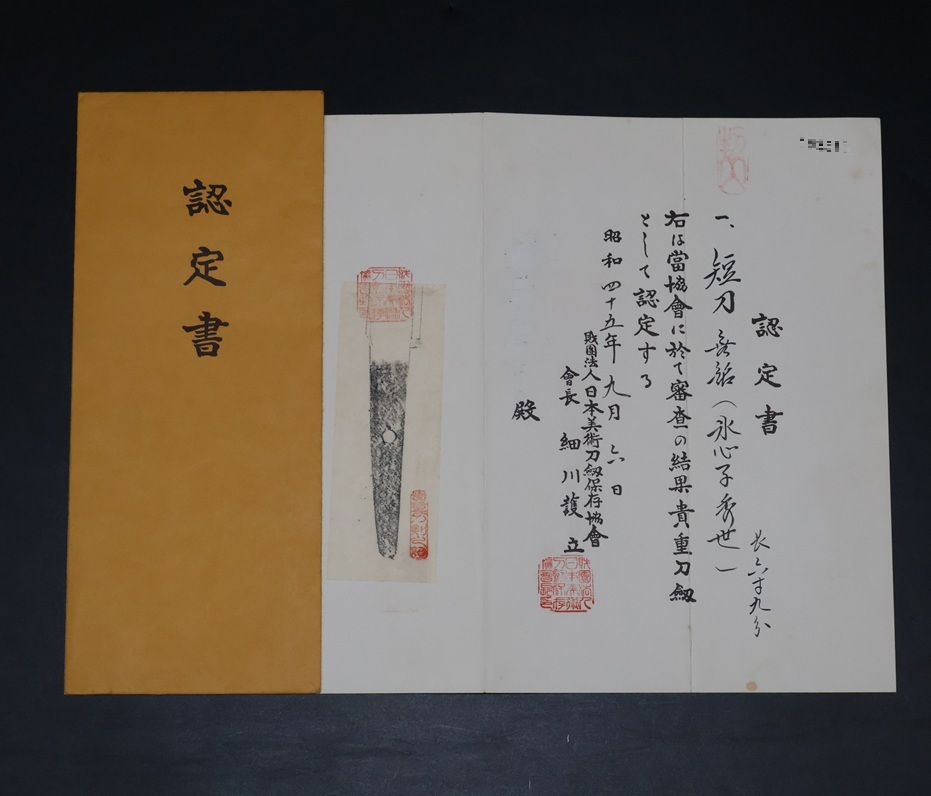 認定書
認定書
一、短刀 無銘(氷心子秀世)
長六寸九分
右は當協會に於て審査の結果貴重刀劔
として認定する
昭和四十五年九月六日
財團法人日本美術刀劔保存協會
會長 細川護立
殿